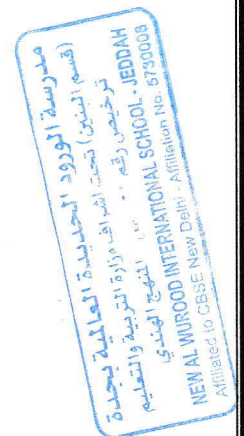 مدرسة الورود الجديدة العالمية بجدة
(قسم البنين) تحت اشراف وزارة التربية والتعليم
ترخيص رقم
المنهج الهندي
NEW AL WUROOD INTERNATIONAL SCHOOL - JEDDAH
Affiliated to CBSE New Delhi - Affiliation No. 5730008